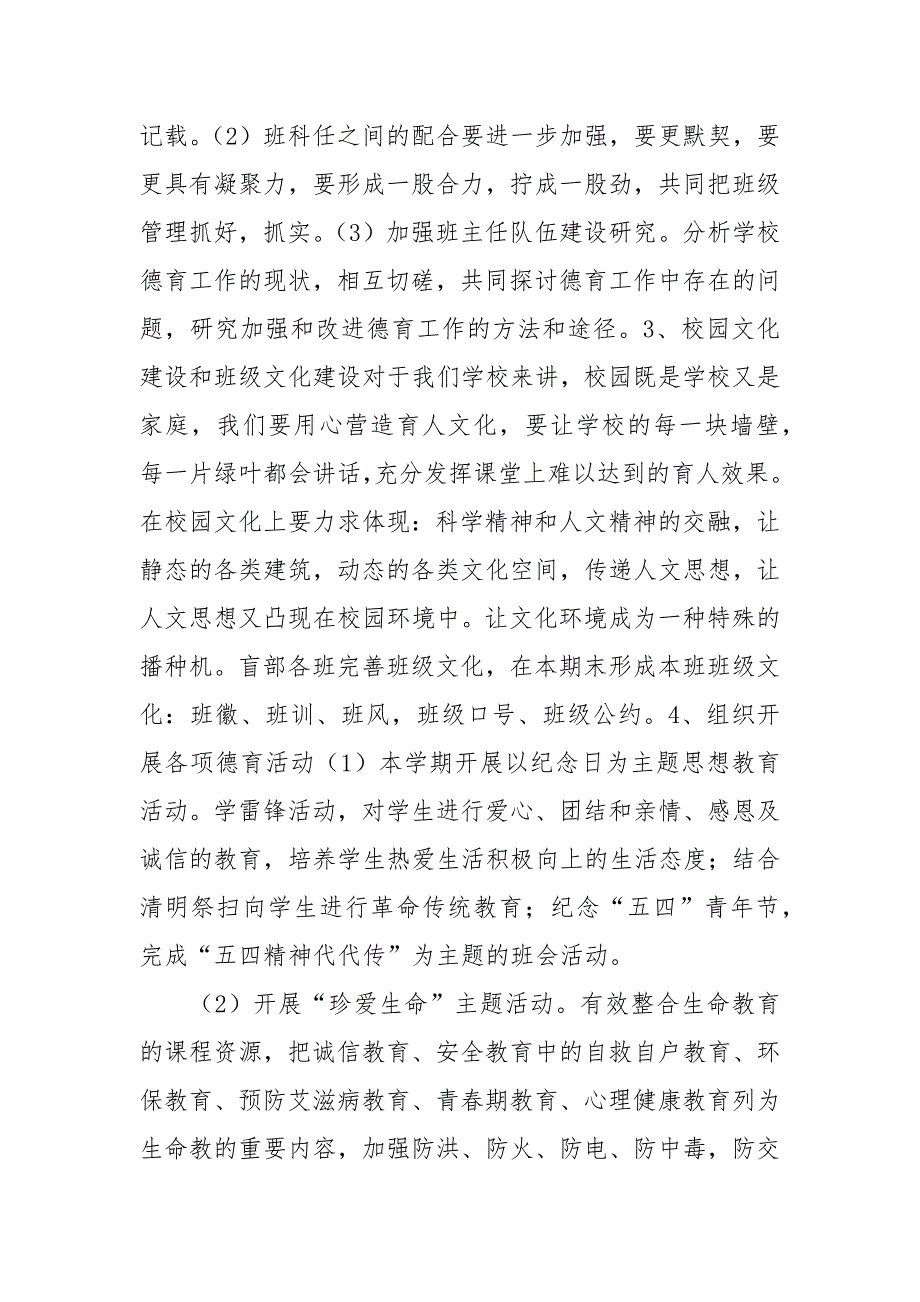 记载。（2）班科任之间的配合要进一步加强，要更默契，要
更具有凝聚力，要形成一股合力，拧成一股劲，共同把班级
管理抓好，抓实。（3）加强班主任队伍建设研究。分析学校
德育工作的现状，相互切磋，共同探讨德育工作中存在的问
题，研究加强和改进德育工作的方法和途径。3、校园文化
建设和班级文化建设对于我们学校来讲，校园既是学校又是
家庭，我们要用心营造育人文化，要让学校的每一块墙壁，
每一片绿叶都会讲话，充分发挥课堂上难以达到的育人效果。
在校园文化上要力求体现：科学精神和人文精神的交融，让
静态的各类建筑，动态的各类文化空间，传递人文思想，让
人文思想又凸现在校园环境中。让文化环境成为一种特殊的
播种机。盲部各班完善班级文化，在本期末形成本班班级文
化：班徽、班训、班风，班级口号、班级公约。4、组织开
展各项德育活动（1）本学期开展以纪念日为主题思想教育
活动。学雷锋活动，对学生进行爱心、团结和亲情、感恩及
诚信的教育，培养学生热爱生活积极向上的生活态度；结合
清明祭扫向学生进行革命传统教育；纪念“五四”青年节，
完成“五四精神代代传”为主题的班会活动。
（2）开展“珍爱生命”主题活动。有效整合生命教育
的课程资源，把诚信教育、安全教育中的自救自户教育、环
保教育、预防艾滋病教育、青春期教育、心理健康教育列为
生命教的重要内容，加强防洪、防火、防电、防中毒，防交